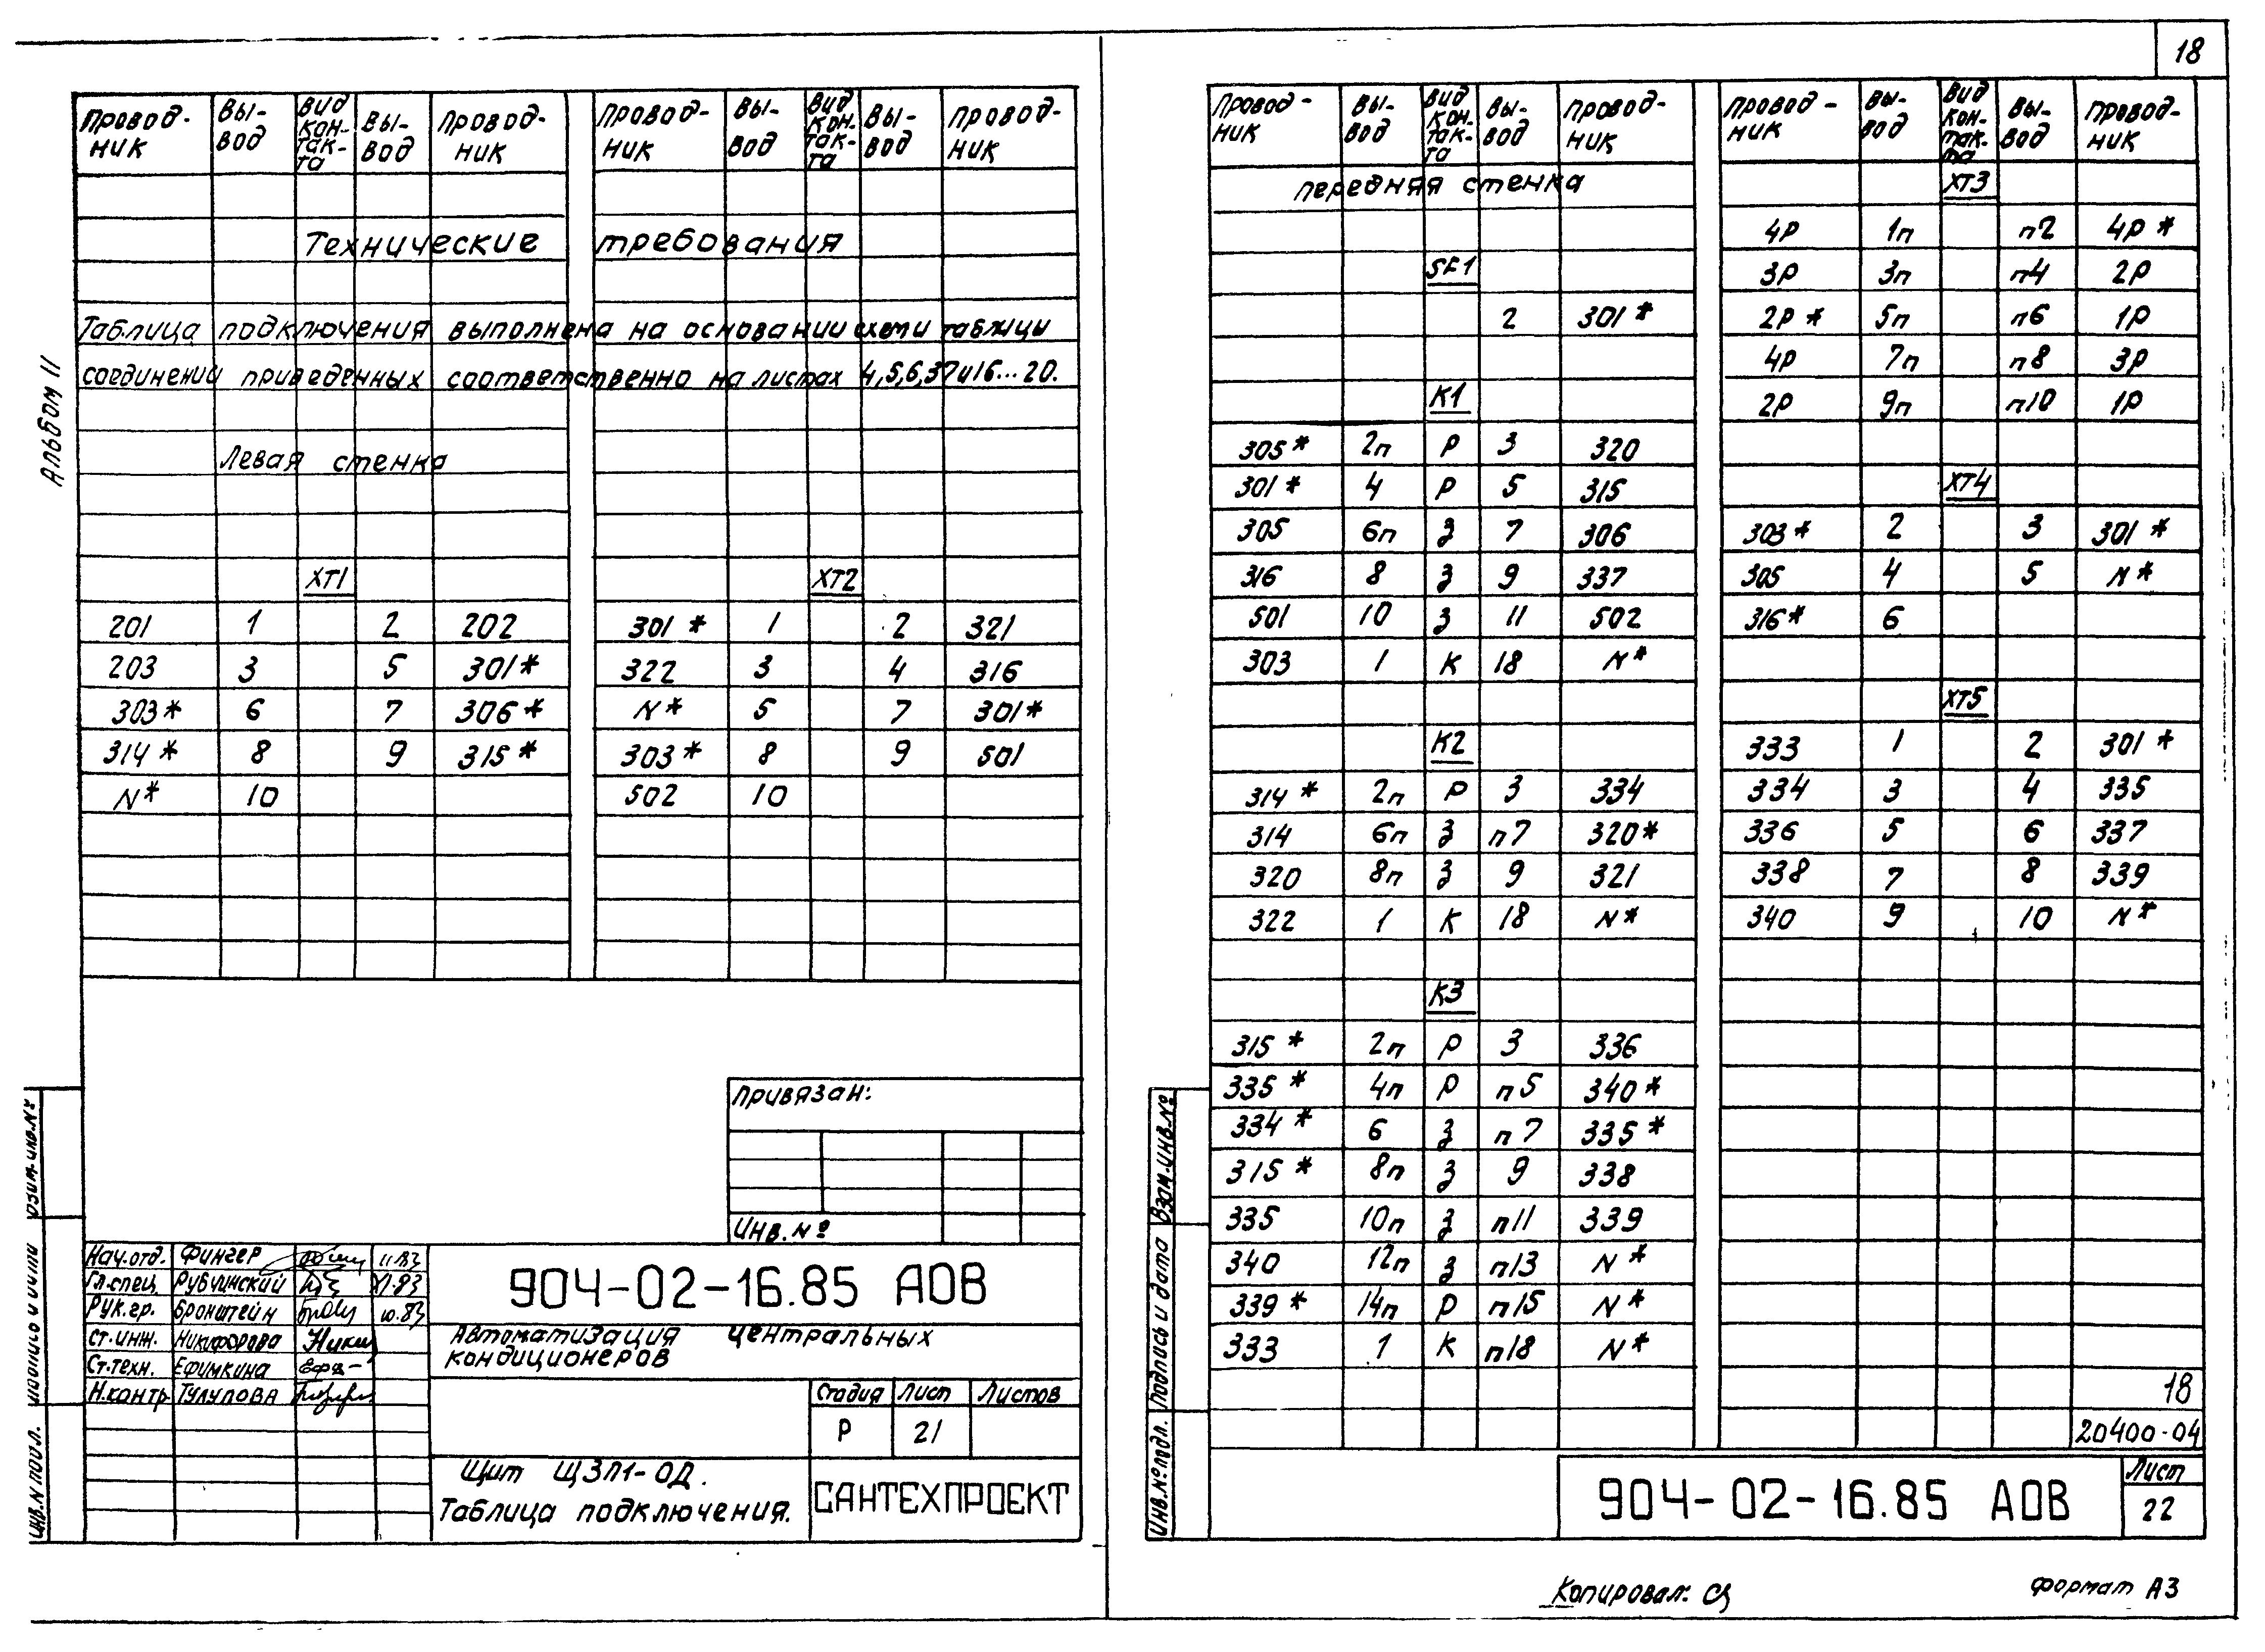 18
Альбом 11
Провод-ник Вы-вод Вид кон-так-та Вы-вод Провод-ник Провод-ник Вы-вод Вид кон-так-та Вы-вод Провод-ник
Технические требования
Таблица подключения выполнена на основании схемы и таблицы
соединений приведенных соответственно на листах 4,5,6,37 и 16...20.
Левая стенка
ХТ1 ХТ2
201 1 2 202 301* 1 2 321
203 3 5 301* 322 3 4 316
303* 6 7 306* N* 5 7 301*
314* 8 9 315* 303* 8 9 501
N* 10 502 10
Привязан:
Инв.№
Нач.отд. Фингер 11.83
Гл.спец. Рубчинский XI.83
Рук.гр. Бронштейн 10.83
Ст.инж. Никифорова
Ст.техн. Ефимкина
Н.контр Тулупова
904-02-16.85 АОВ
Автоматизация центральных
кондиционеров
Стадия Лист Листов
Р 21
Щит ЩЗП1-ОД.
Таблица подключения.
САНТЕХПРОЕКТ
Инв.N подл. Подпись и дата Взам.инв.№
Провод-ник Вы-вод Вид кон-так-та Вы-вод Провод-ник
Передняя стенка
SF1
2 301*
К1
305* 2п Р 3 320
301* 4 Р 5 315
305 6п З 7 306
316 8 З 9 337
501 10 З 11 502
303 1 К 18 N*
К2
314* 2п Р 3 334
314 6п З п7 320*
320 8п З 9 321
322 1 К 18 N*
К3
315* 2п Р 3 336
335* 4п Р п5 340*
334* 6 З п7 335*
315* 8п З 9 338
335 10п З п11 339
340 12п З п13 N*
339* 14п Р п15 N*
333 1 К п18 N*
Провод-ник Вы-вод Вид кон-так-та Вы-вод Провод-ник
ХТ3
4Р 1п п2 4Р*
3Р 3п п4 2Р
2Р* 5п п6 1Р
4Р 7п п8 3Р
2Р 9п п10 1Р
ХТ4
303* 2 3 301*
305 4 5 N*
316* 6
ХТ5
333 1 2 301*
334 3 4 335
336 5 6 337
338 7 8 339
340 9 10 N*
18
20400-04
Инв.№подл. Подпись и дата Взам.инв.№
904-02-16.85 АОВ
Лист
22
Копировал:
Формат А3